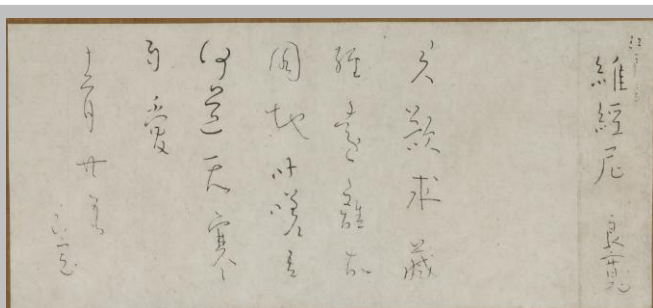 維經尼 良寛
君欲求藏
經遠離故
園地吁嗟吾
何道天寒
自愛
十二月廿五日
良寛